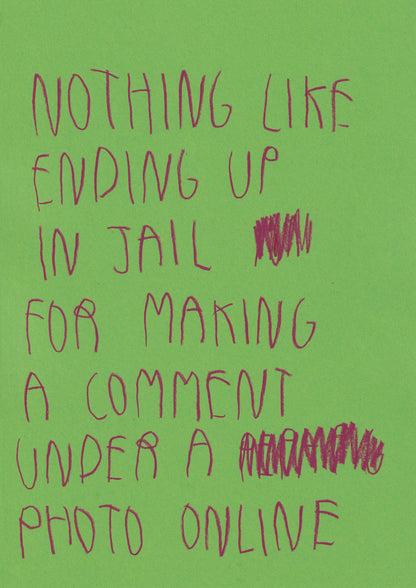 NOTHING LIKE
ENDING UP
IN JAIL
FOR MAKING
A COMMENT
UNDER A
PHOTO ONLINE